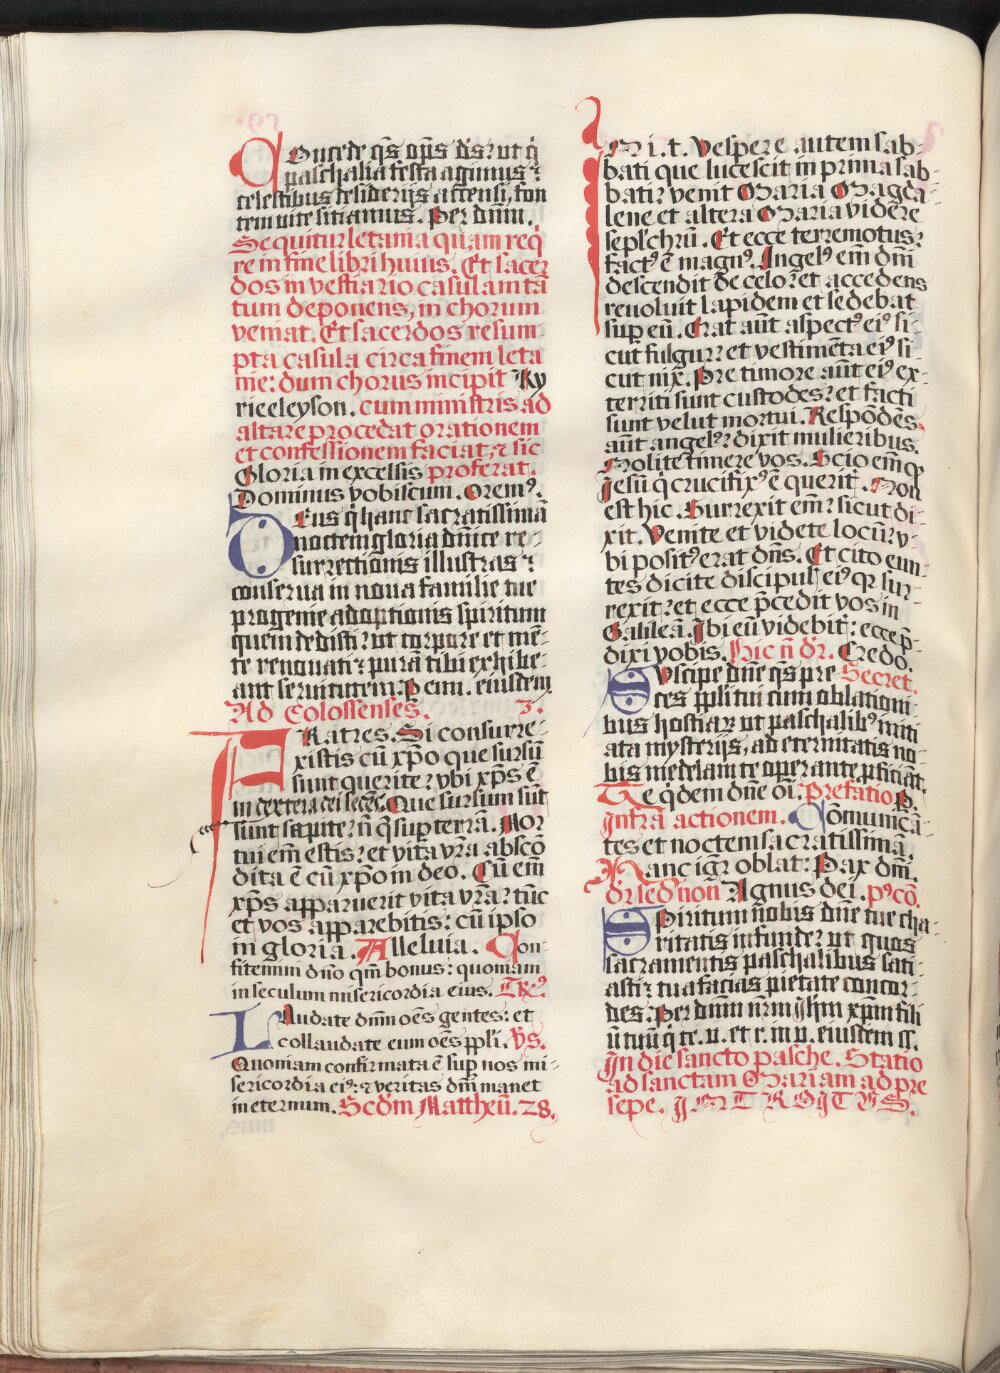 Concede q̃s op̃s ds̃: ut q̇
paschalia festa agimus ⁊
celestibus desiderijs accensi, fon
tem vite sitiamus. Per dñm.
Sequitur letania quam req̇
re in fine libri huius. Et sacer
dos in vestiario casulam tã
tum deponens, in chorum
veniat. Et sacerdos resum
pta casula circa finem leta
nie: dum chorus incipit Ky
rieeleyson. cum ministris ad
altare procedat orationem
et confessionem faciat, ⁊ sic
Gloria in excelsis proferat.
Dominus vobiscum. Oremꝰ.
Deus q̇ hanc sacratissimã
noctem gloria dñice re-
surrectionis illustras ⁊
conserua in noua familie tue
progenie adoptionis spiritum
quem dedisti: ut corpore et mẽ-
te renouati ⁊ purã tibi exhibe-
ant seruitutem. P eun. eiusdem
Ad Colossenses. 3.
FRatres. Si consurre-
xistis cũ xp̃o que sursũ
sunt querite: vbi xp̃s ẽ
in dextera dei sedẽs. Que sursum sũt
sunt sapite: ñ q̃ sup terrã. Mor
tui em̃ estis: et vita vr̃a abscõ
dita ẽ cũ xp̃o in deo. Cũ em̃
xp̃s apparuerit vita vr̃a: tũc
et vos apparebitis: cũ ipso
in gloria. Alleluia. Con-
fitemini dño qm̃ bonus: quoniam
in seculum misericordia eius. Trc̃ꝰ.
LAudate dñm oẽs gentes: et
collaudate eum oẽs ppl̃i. Vs.
Quoniam confirmata ẽ sup nos mi-
sericordia eiꝰ: ⁊ veritas dñi manet
in eternum. Scdm Mattheũ. 28.
IN i. t. Vespere autem sab-
bati que lucescit in prima sab-
bati: venit Maria Magda-
lene et altera Maria videre
sepl̃chrũ. Et ecce terremotus:
factꝰ ẽ magnꝰ. Angelꝰ em̃ dñi
descendit de celo: et accedens
reuoluit lapidem et sedebat
sup eũ. Erat aũt aspectꝰ eiꝰ si-
cut fulgur: et vestimẽta eiꝰ si
cut nix. Pre timore aũt eiꝰ ex-
territi sunt custodes: et facti
sunt velut mortui. Respõdẽs
aũt angelꝰ: dixit mulieribus.
Nolite timere vos. Scio em̃ qꝫ
Jesũ q̇ crucifixꝰ ẽ querit. Non
est hic. Surrexit em̃: sicut di-
xit. Venite et videte locũ: v-
bi positꝰ erat dñs. Et cito eun-
tes dicite discipul' eiꝰ qꝛ sur-
rexit: et ecce p̃cedit vos in
Galileã. Ibi eũ videbitꝭ: ecce p̃-
dixi vobis. Hic ñ dr̃. Credo.
SVscipe dñe q̃s pre- Secret.
ces ppl̃i tui cum oblationi
bus hostiaꝝ ut paschalibꝰ initi
ata mysterijs, ad eternitatis no-
bis medelam te operante ꝓficiãt.
Te q̇dem dñe oĩ: Prefatio p.
Infra actionem. Cõmunicã-
tes et noctem sacratissimã.
Hanc igr̃ oblat: Pax dñi.
dr̃ sed non Agnus dei. p'cõ.
SPiritum nobis dñe tue cha-
ritatis infunde: ut quos
sacramentis paschalibus sati-
asti: tua facias pietate concor-
des. Per dñm nr̃m Jhm xp̃m fili
ũ tuũ q̇ te. u. et r. in u. eiusdem ss.
In die sancto pasche. Statio
ad sanctam Mariam ad pre
sepe. INTROITVS.